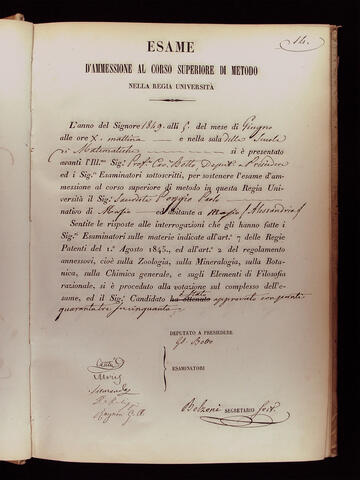 14.
ESAME
D'AMMESSIONE AL CORSO SUPERIORE DI METODO
NELLA REGIA UNIVERSITÀ
L'anno del Signore 1849 alli 5 del mese di Giugno
alle ore X. mattina e nella sala delle Scuole
di Matematiche si è presentato
avanti l'Ill.mo Sig. Prof. Cav. Botto Deput. a Presiedere
ed i Sig.i Esaminatori sottoscritti, per sostenere l'esame d'am-
messione al corso superiore di metodo in questa Regia Uni-
versità il Sig. Sacerdote Poggio Paolo
nativo di Masio ed abitante a Masio (Alessandria)
Sentite le risposte alle interrogazioni che gli hanno fatte i
Sig.i Esaminatori sulle materie indicate all'art.° 7 delle Regie
Patenti del 1.° Agosto 1845, ed all'art.° 2 del regolamento
annessovi, cioè sulla Zoologia, sulla Mineralogia, sulla Bota-
nica, sulla Chimica generale, e sugli Elementi di Filosofia
razionale, si è proceduto alla votazione sul complesso dell'e-
same, ed il Sig. Candidato ha ottenuto è stato approvato con punti
quarantatre su cinquanta
DEPUTATO A PRESIEDERE
G. Botto
ESAMINATORI
Cantù
Belzoni SEGRETARIO Sost.